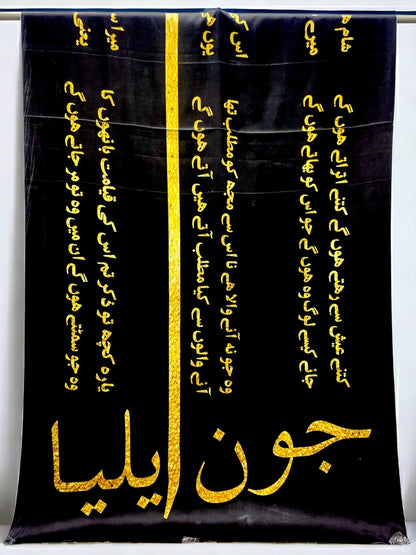 کتنے عیش سے رہتے ہوں گے کتنے اتراتے ہوں گے
جانے کیسے لوگ وہ ہوں گے جو اس کو بھاتے ہوں گے
شام ہ
میرے
اس ک
یوں ہ
وہ جو نہ آنے والا ہے نا اس سے مجھ کو مطلب تھا
آنے والوں سے کیا مطلب آتے ہیں آتے ہوں گے
میرا س
یعنی
یارو کچھ تو ذکر کرو تم اس کی قیامت بانہوں کا
وہ جو سمٹتے ہوں گے ان میں وہ تو مر جاتے ہوں گے
جون ایلیا